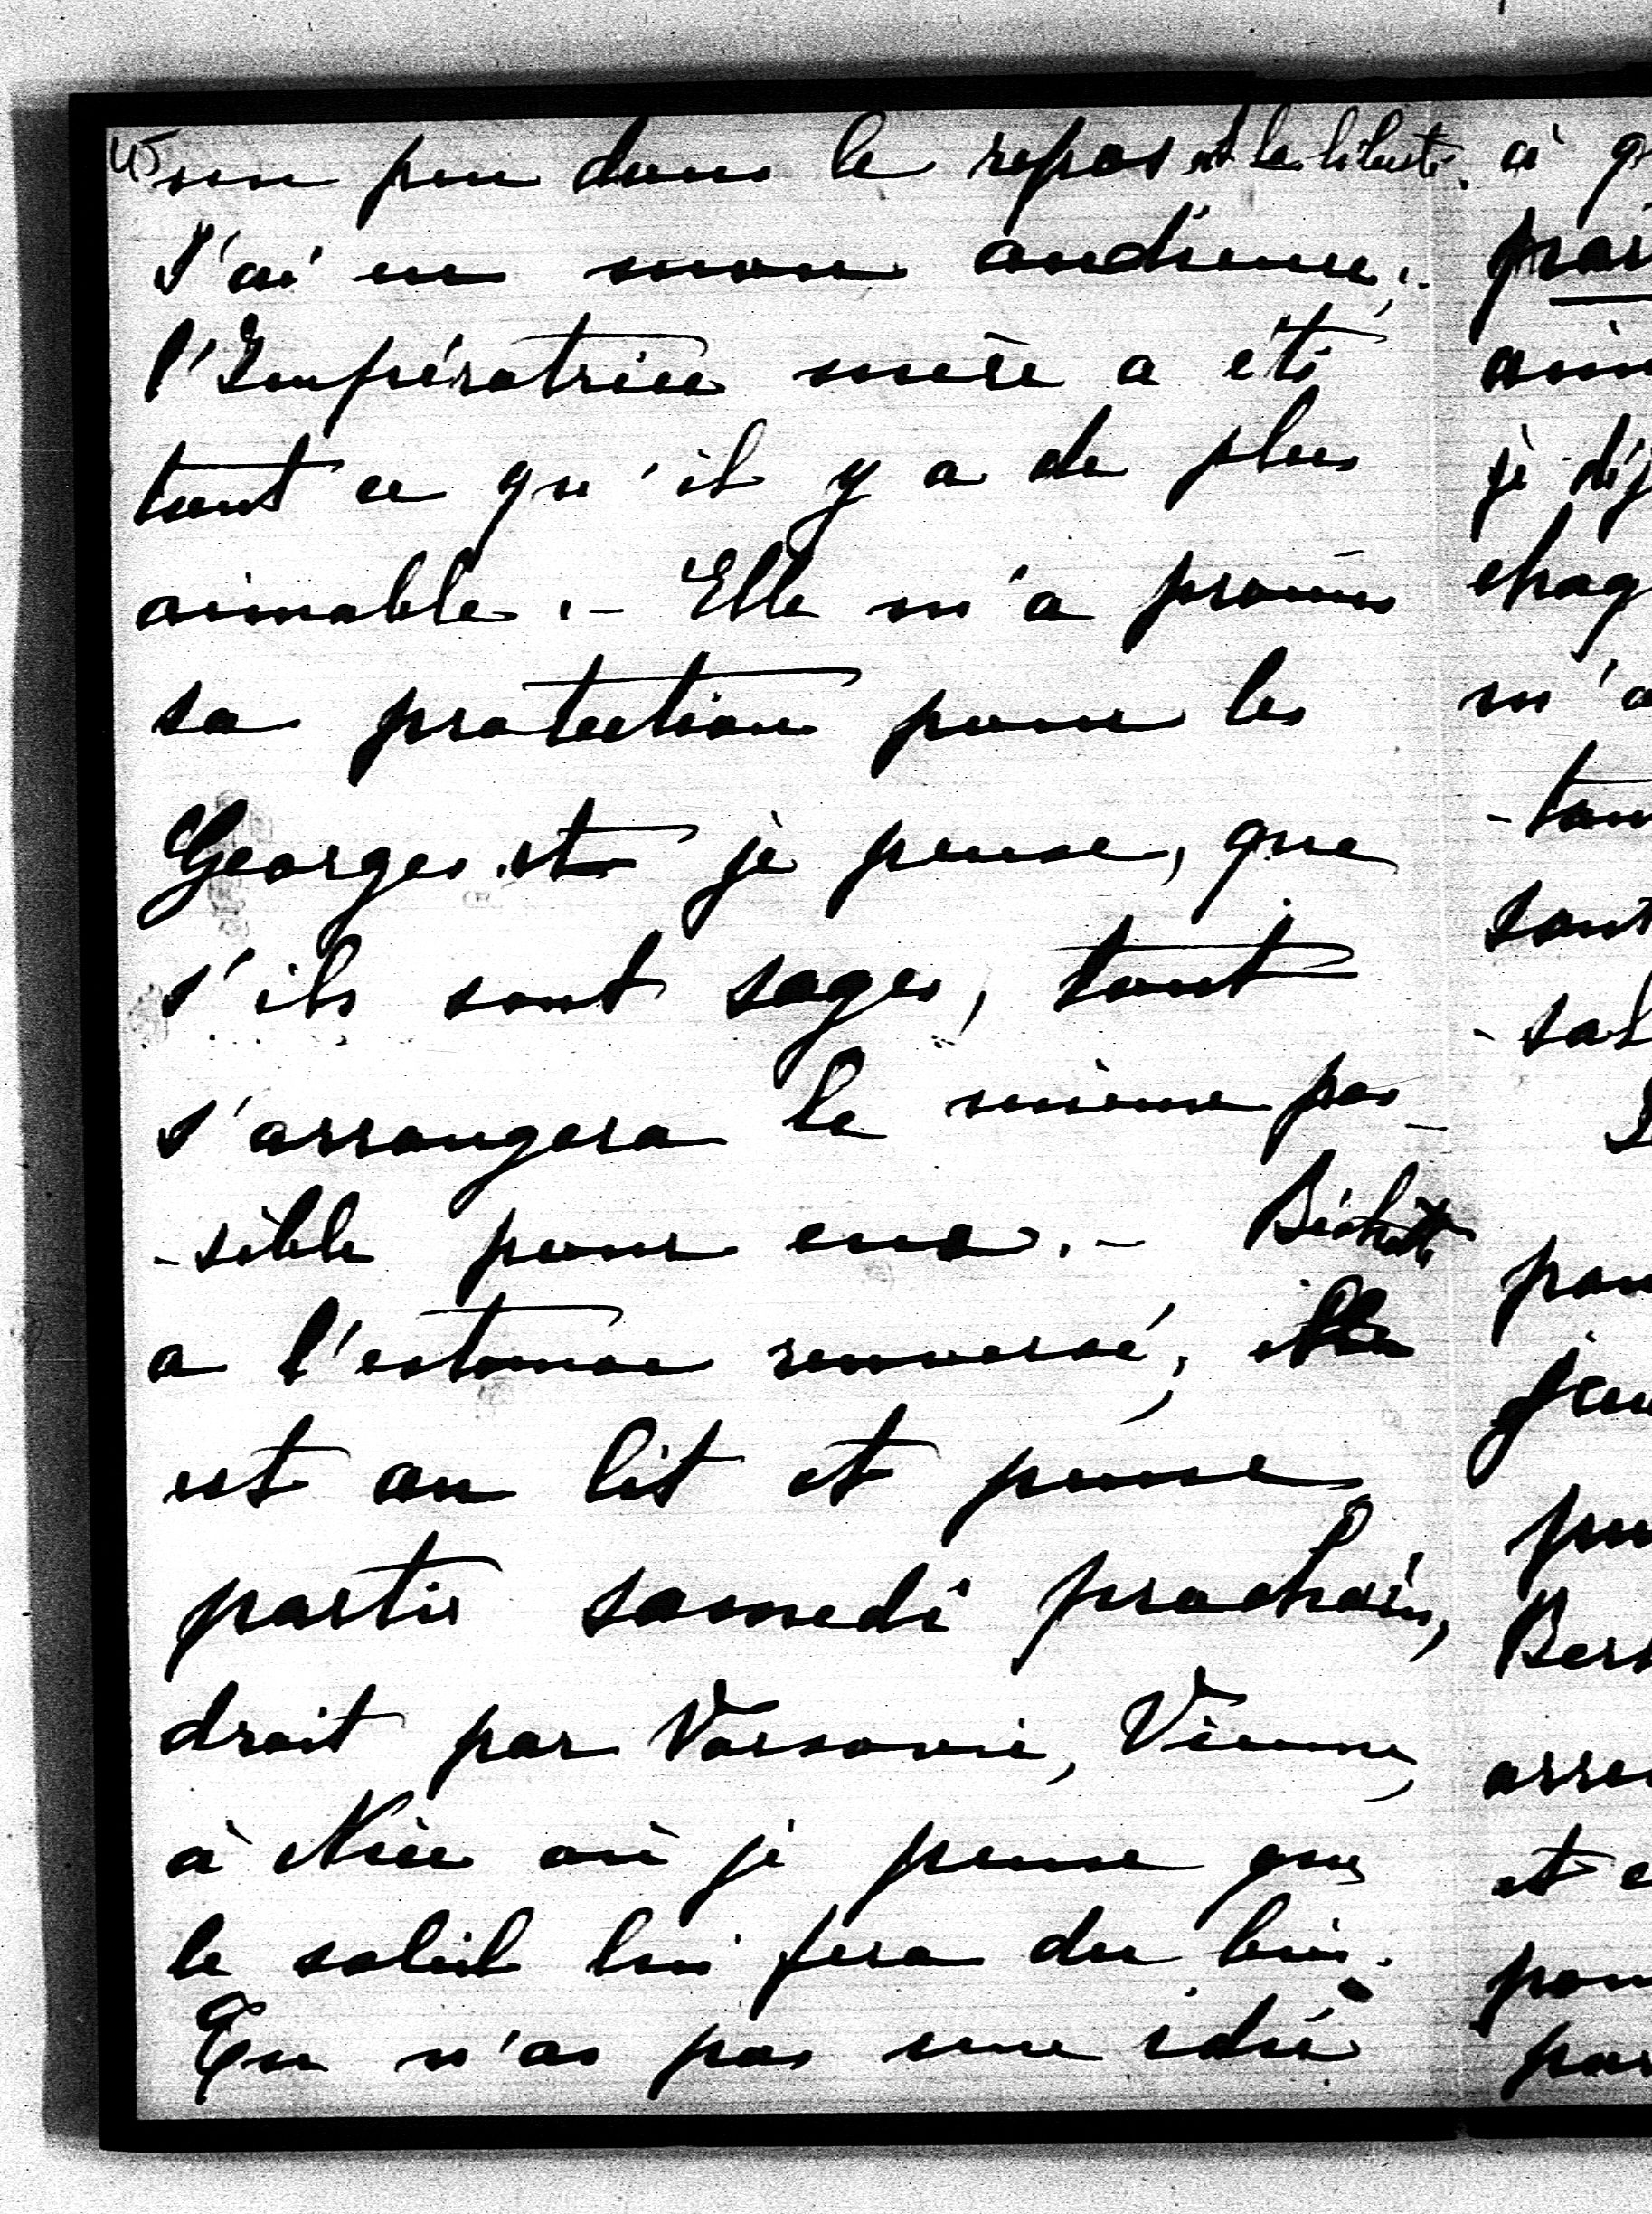 un peu dans le repos et la liberté.
J'ai eu mon audience;
l'Impératrice mère a été
tout ce qu'il y a de plus
aimable.- Elle m'a promis
sa protection pour les
Georges et je pense, que
s'ils sont sages, tout
s'arrangera le mieux pos-
-sible pour eux.- Bichette
a l'estomac renversé, elle
est au lit et pense
partir samedi prochain,
droit par Varsovie, Vienne,
à Nice où je pense que
le soleil lui fera du bien.
Tu n'as pas une idée
à
je
m'a
et